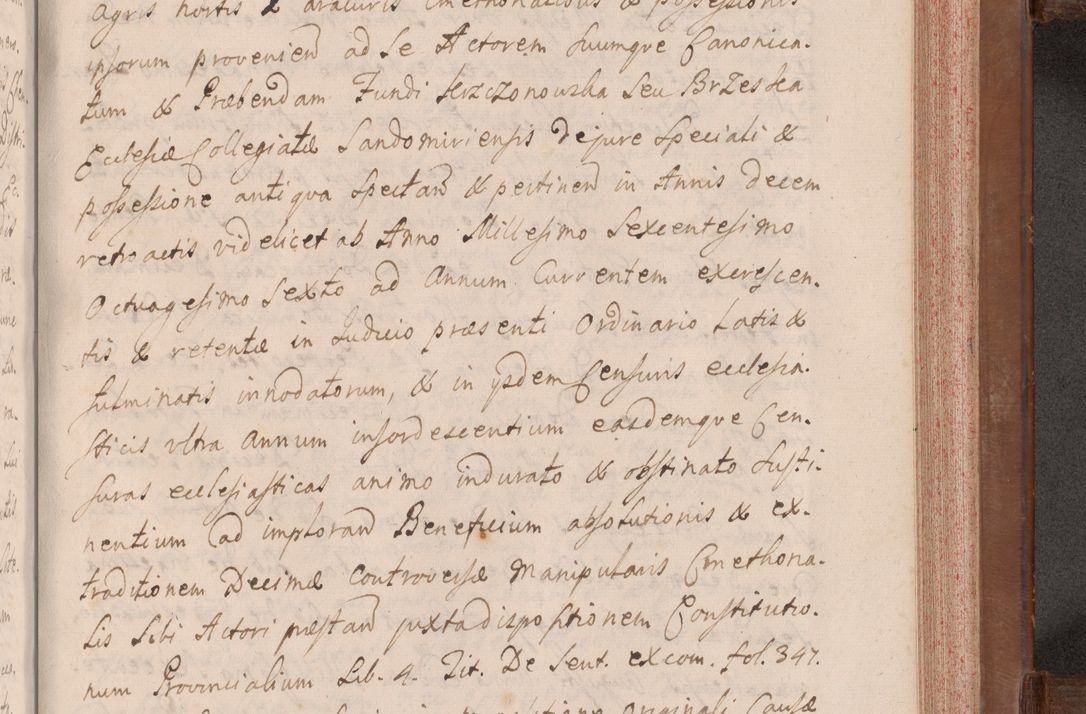 Agris hortis & araturis Cmethonalibus & possessionis
ipsorum provenien ad se Actorem suumque Canonica-
tum & Præbendam Fundi Krzczonowska seu Brzeska
Ecclesiæ Collegiatæ Sandomiriensis de jure speciali &
possessione antiqua spectan & pertinen in Annis decem
retroactis videlicet ab Anno Millesimo Sexcentesimo
Octuagesimo Sexto ad Annum Currentem excrescen-
tis & retentæ in Judicio præsenti Ordinario Latis &
fulminatis innodatorum, & in ysdem Censuris ecclesia-
sticis vltra Annum insordescentium easdemque Cen-
suras ecclesiasticas animo indurato & obstinato susti-
nentium ad imploran Beneficium absolutionis & ex-
traditionem Decimæ controversæ Manipularis Cmethona-
lis sibi Actori præstan juxta dispositionem Constitutio-
num Provincialium Lib. 4. Tit. De Sent. excom. fol. 347.
Originali Causæ